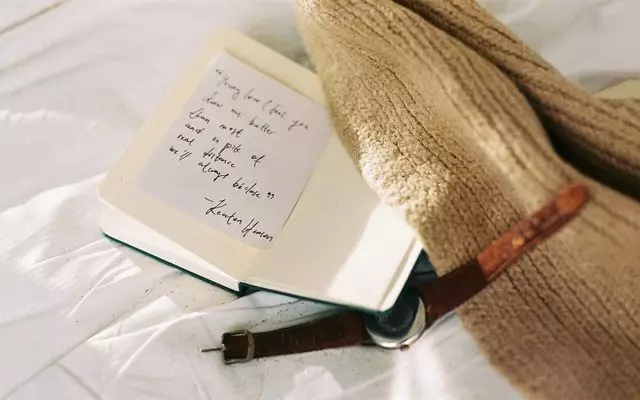 "Young love I feel you
know me better
than most
and in spite of
real distance
we'll always be close"
- Kenton Henson